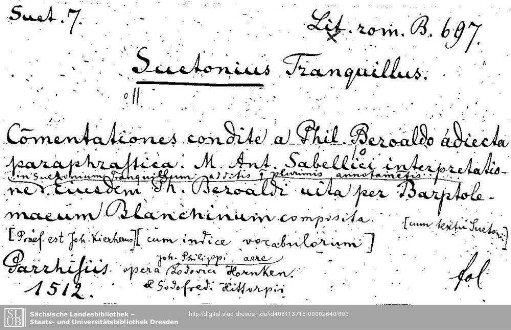 Suet. 7.
Lit. rom. B. 697.
Suetonius Tranquillus.
Cōmentationes condite a Phil. Beroaldo ádiecta
paraphrastica M. Ant. Sabellici interpretatio-
in Suetonium Tranquillum additis plurimis annotamentis
ne. Eiusdem Ph. Beroaldi uita per Barptole-
maeum Blanchinum composita. [cum textu Suetoni]
[Praef. est Joh. Kierhaus] [cum indice vocabulorum]
Joh. Philippi aere
Parrhisiis opera Lodovici Hornken.
1512. & Godofredi Hittorpii fol.
Sächsische Landesbibliothek –
Staats- und Universitätsbibliothek Dresden